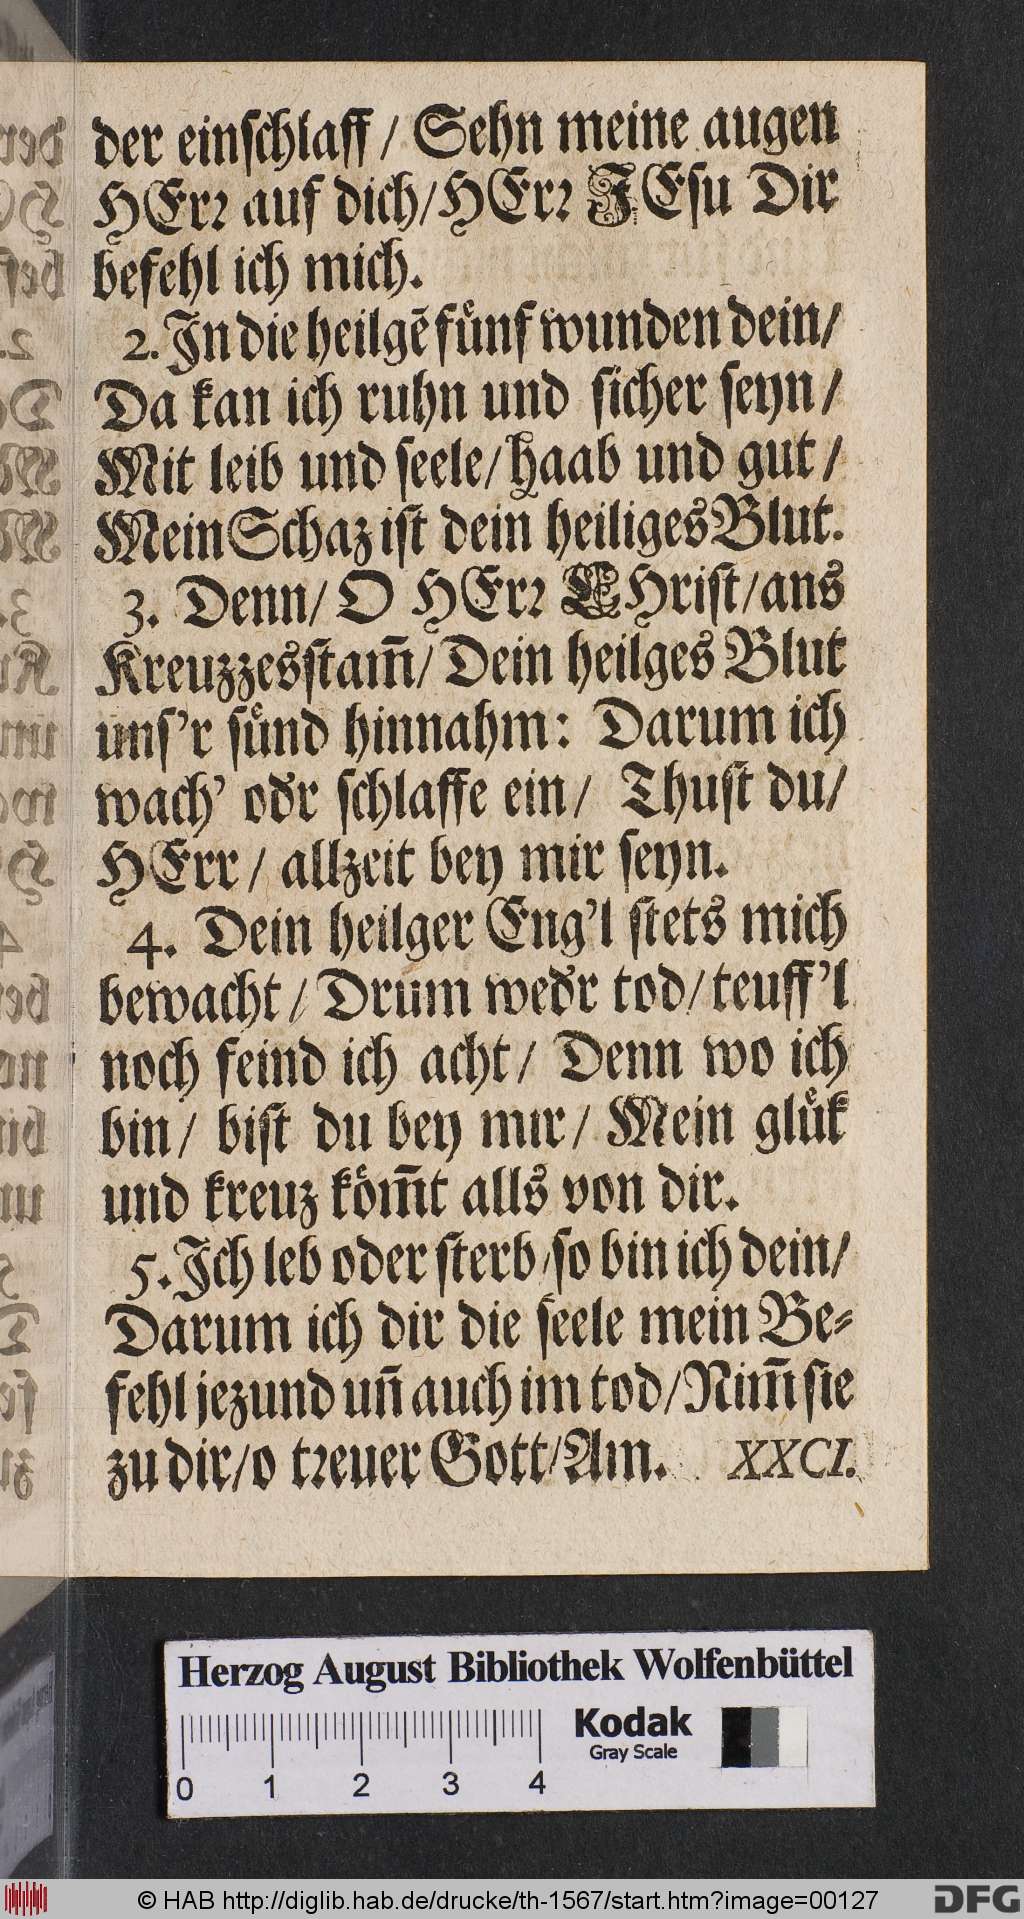 der einſchlaff / Sehn meine augen
HErꝛ auf dich / HErꝛ JEſu Dir
befehl ich mich.
2. In die heilgē fuͤnf wunden dein /
Da kan ich ruhn und ſicher ſeyn /
Mit leib und ſeele / haab und gut /
Mein Schaz iſt dein heiliges Blut.
3. Denn / O HErꝛ CHriſt / ans
Kreuzzesſtam̄ / Dein heilges Blut
unſ'r ſuͤnd hinnahm: Darum ich
wach' odr ſchlaffe ein / Thuſt du /
HErr / allzeit bey mir ſeyn.
4. Dein heilger Eng'l ſtets mich
bewacht / Drum wedr tod / teuff'l
noch feind ich acht / Denn wo ich
bin / biſt du bey mir / Mein gluͤk
und kreuz koͤm̄t alls von dir.
5. Ich leb oder ſterb / ſo bin ich dein /
Darum ich dir die ſeele mein Be⸗
fehl jezund un̄ auch im tod / Nim̄ ſie
zu dir / o tꝛeuer Gott / Am. XXCI.
Herzog August Bibliothek Wolfenbüttel
Kodak
Gray Scale
0 1 2 3 4
© HAB http://diglib.hab.de/drucke/th-1567/start.htm?image=00127
DFG